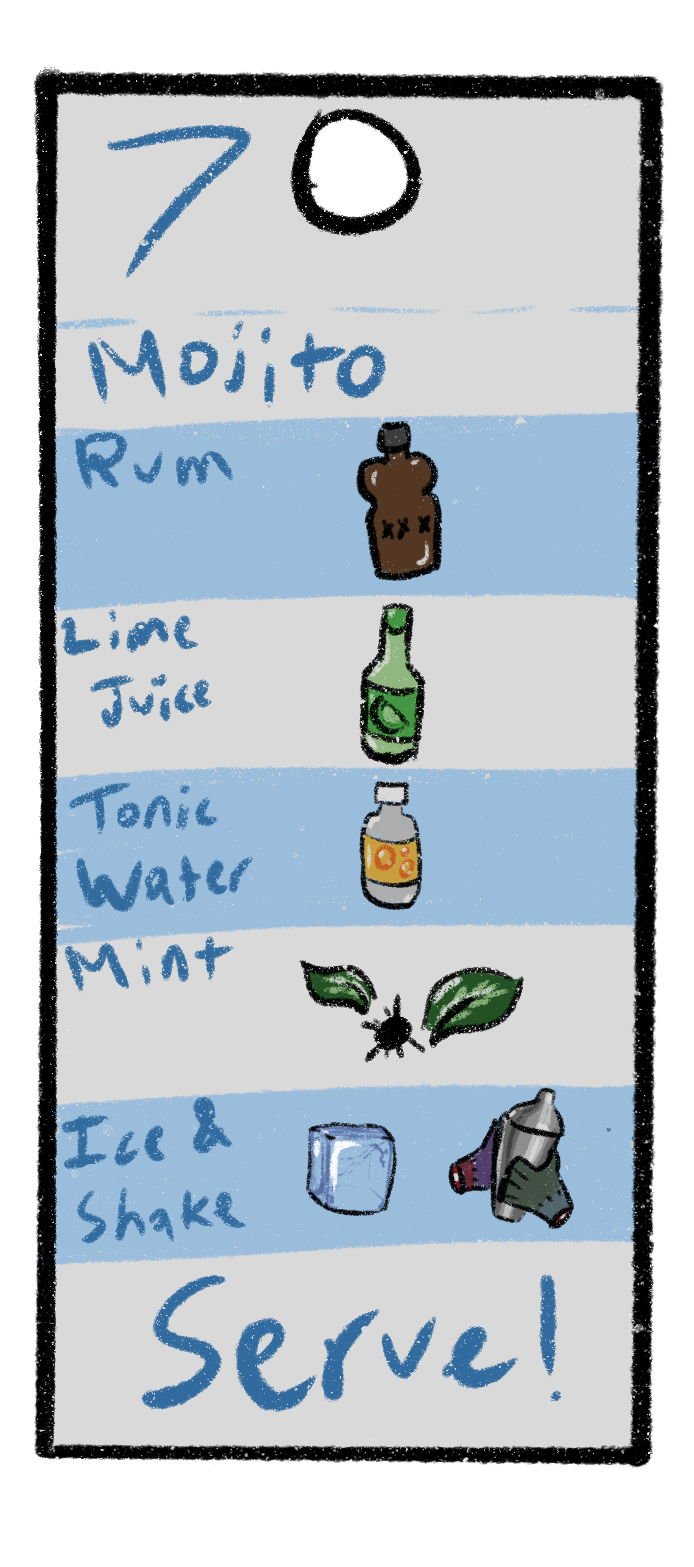 7
Mojito
Rum
XXX
Lime
Juice
Tonic
Water
Mint
Ice &
Shake
Serve!